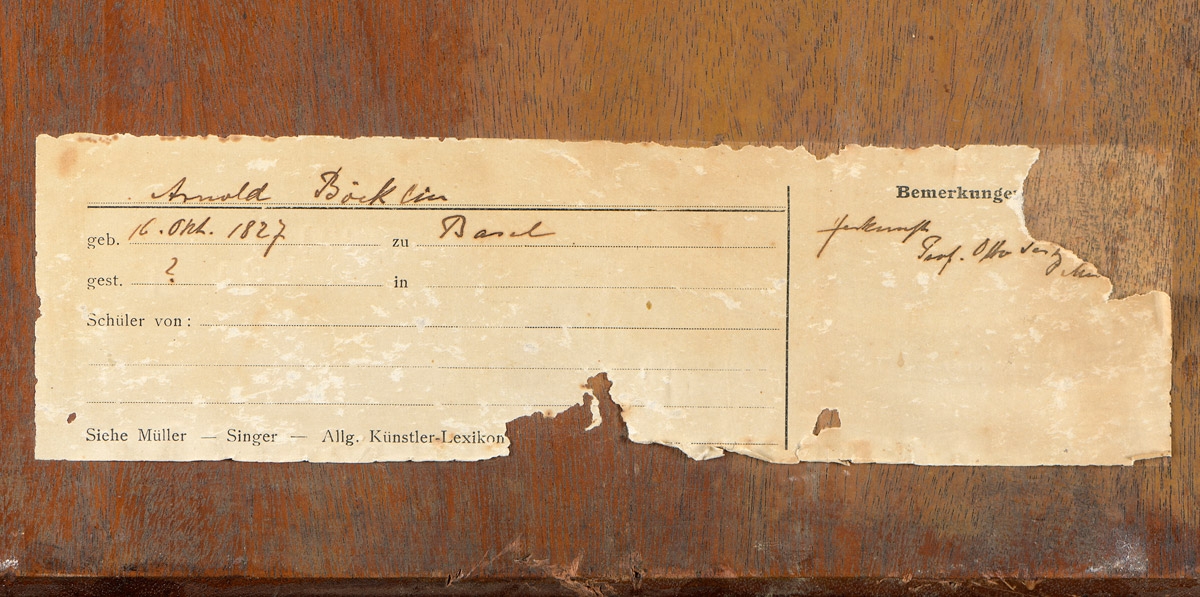 Arnold Böcklin
geb. 16. Okt. 1827 zu Basel
gest. ? in
Schüler von:
Siehe Müller — Singer — Allg. Künstler-Lexikon
Bemerkunge
Herkunft
Prof. Otto